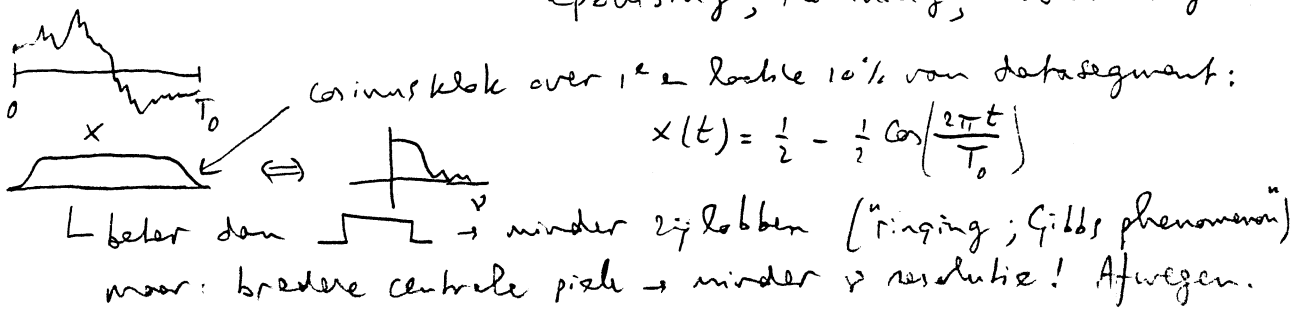 cosinusklok over 1e en laatste 10% van datasegment:
0 T₀
x(t) = 1/2 - 1/2 cos(2πt/T₀)
x ⇔ ν
beter dan → minder zijlobben ("ringing; Gibbs phenomenon")
maar: bredere centrale piek → minder ν resolutie! Afwegen.